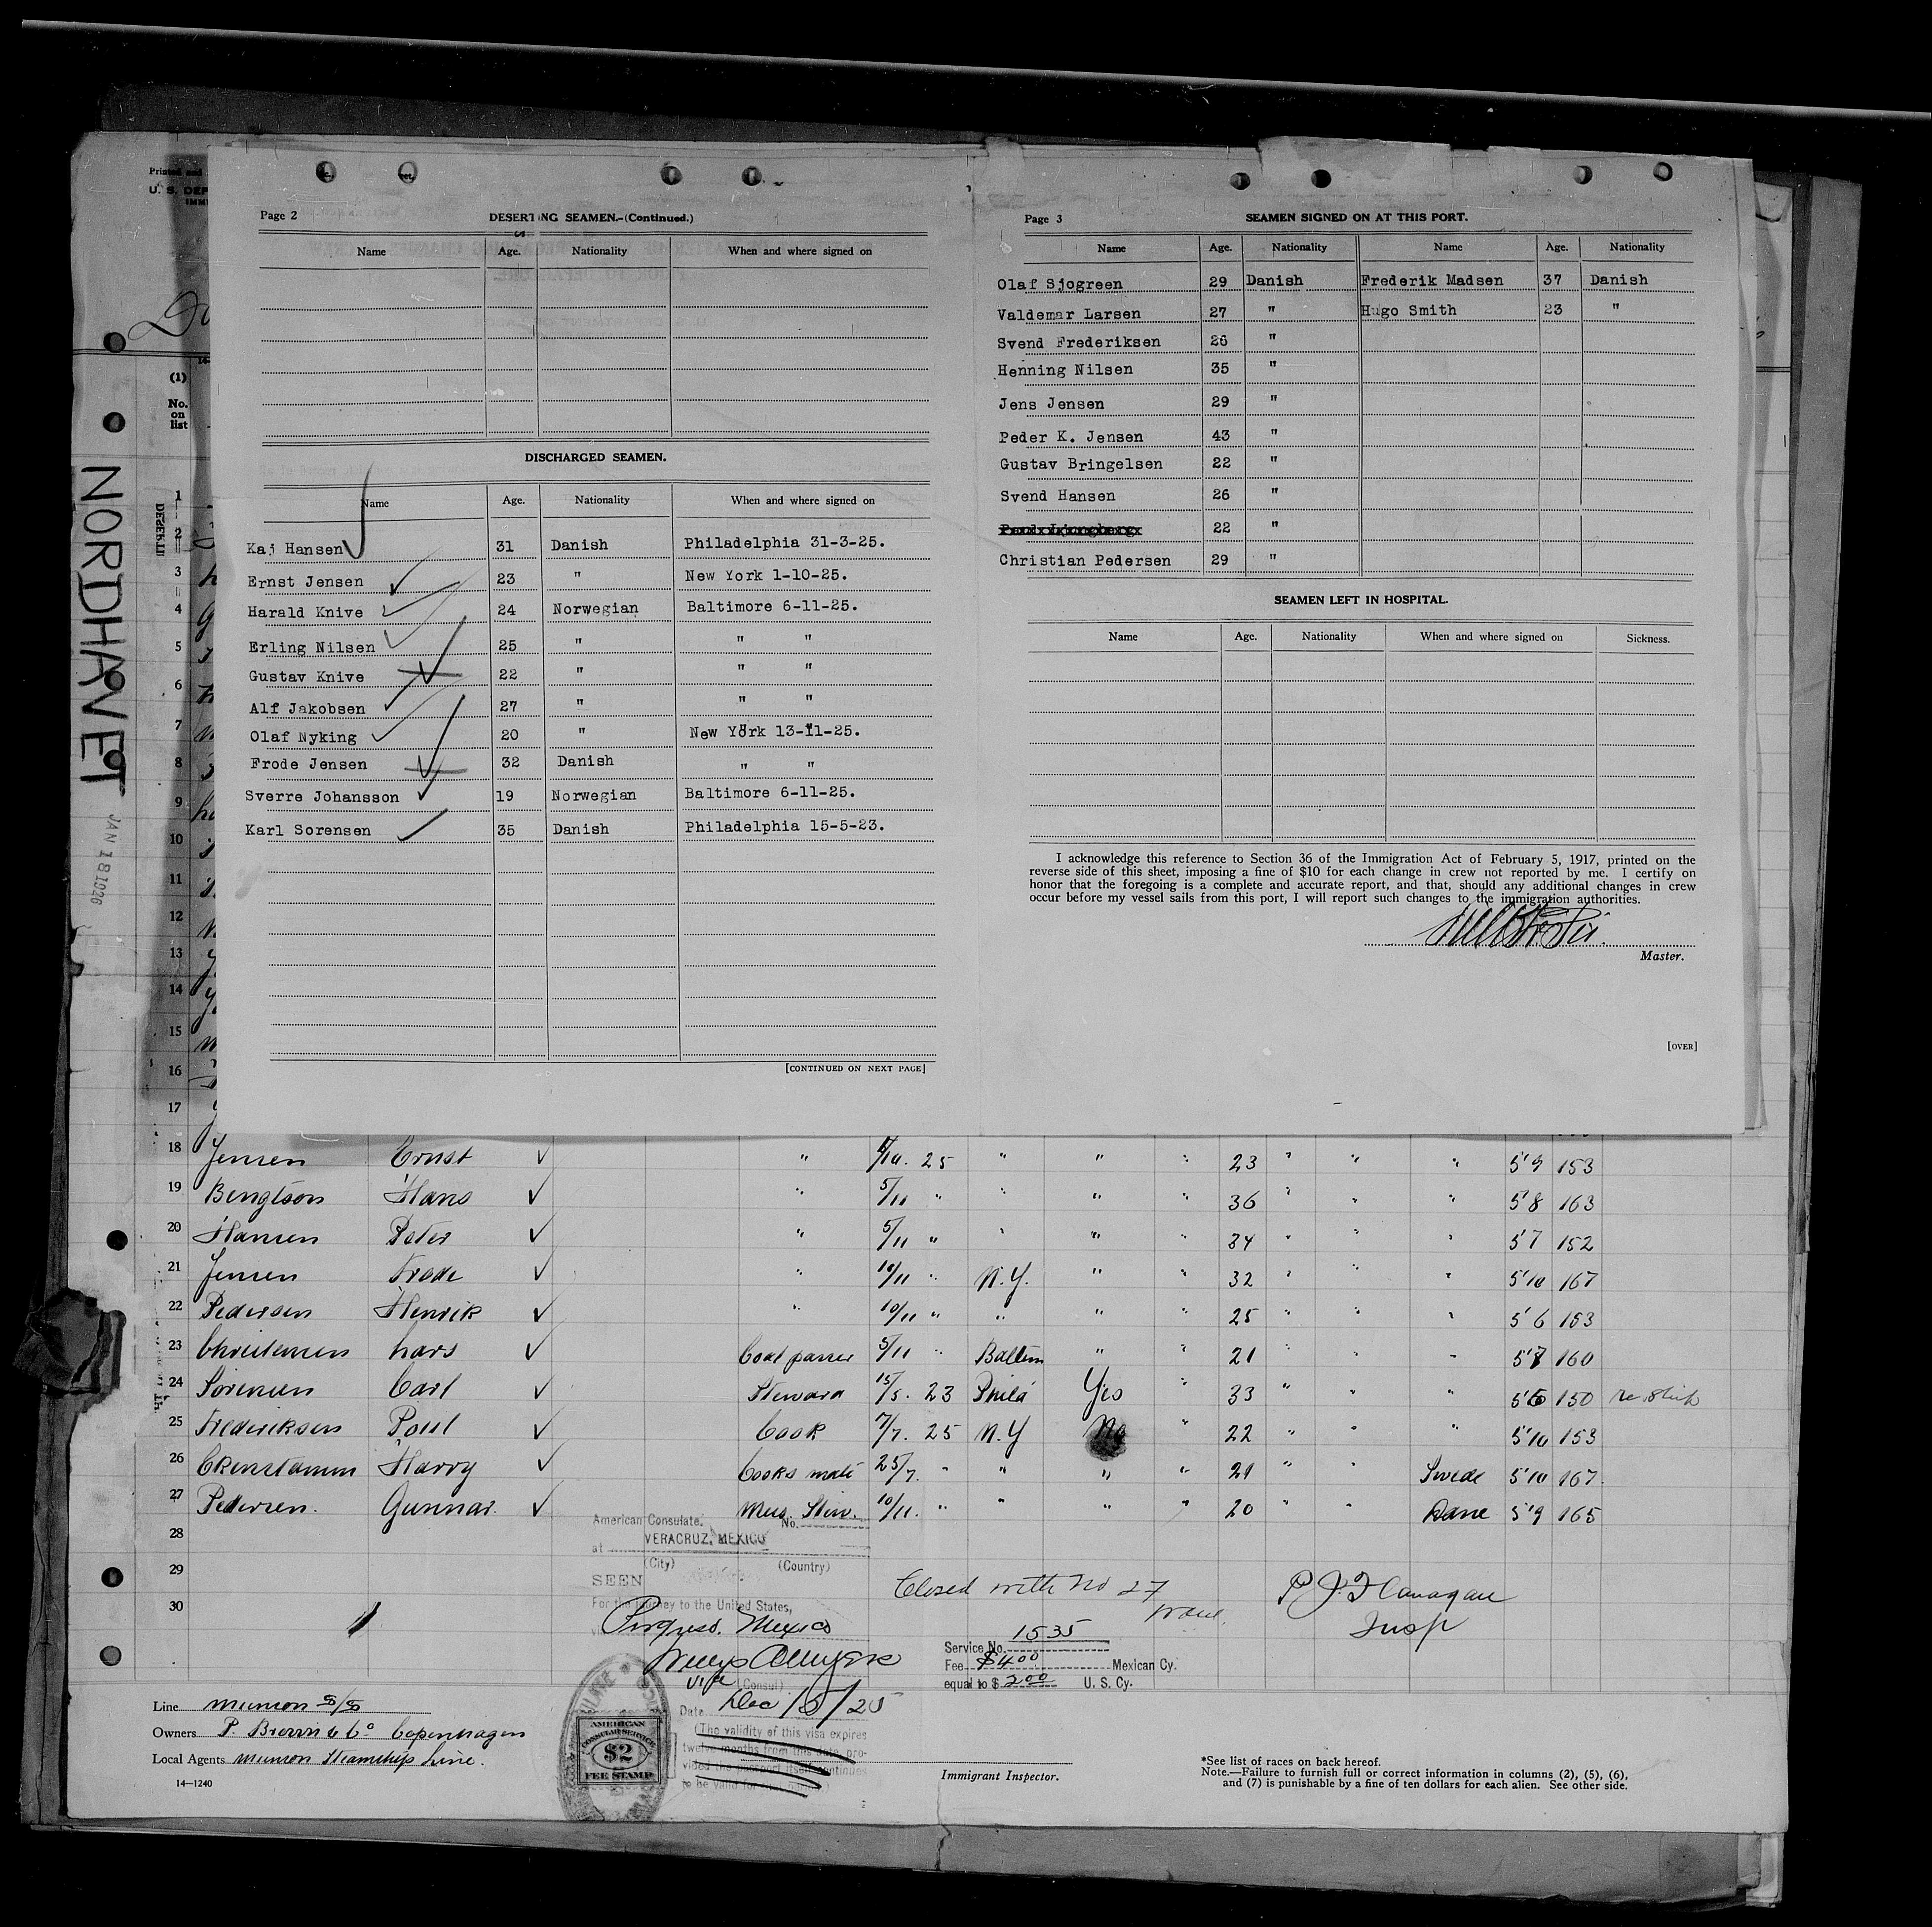 Printed and
U. S. DEP
IMMI
(1)
No.
on
list
NORDHAVET
JAN 18 1926
Page 2
DESERTING SEAMEN.—(Continued.)
Name Age. Nationality When and where signed on
DISCHARGED SEAMEN.
Name Age. Nationality When and where signed on
Kaj Hansen 31 Danish Philadelphia 31-3-25.
Ernst Jensen 23 " New York 1-10-25.
Harald Knive 24 Norwegian Baltimore 6-11-25.
Erling Nilsen 25 " " "
Gustav Knive 22 " " "
Alf Jakobsen 27 " " "
Olaf Nyking 20 " New York 13-11-25.
Frode Jensen 32 Danish " "
Sverre Johansson 19 Norwegian Baltimore 6-11-25.
Karl Sorensen 35 Danish Philadelphia 15-5-23.
[CONTINUED ON NEXT PAGE]
Page 3
SEAMEN SIGNED ON AT THIS PORT.
Name Age. Nationality Name Age. Nationality
Olaf Sjogreen 29 Danish Frederik Madsen 37 Danish
Valdemar Larsen 27 " Hugo Smith 23 "
Svend Frederiksen 26 "
Henning Nilsen 35 "
Jens Jensen 29 "
Peder K. Jensen 43 "
Gustav Bringelsen 22 "
Svend Hansen 26 "
22 "
Christian Pedersen 29 "
SEAMEN LEFT IN HOSPITAL.
Name Age. Nationality When and where signed on Sickness.
I acknowledge this reference to Section 36 of the Immigration Act of February 5, 1917, printed on the
reverse side of this sheet, imposing a fine of $10 for each change in crew not reported by me. I certify on
honor that the foregoing is a complete and accurate report, and that, should any additional changes in crew
occur before my vessel sails from this port, I will report such changes to the immigration authorities.
Master.
[OVER]
1
2
3
4
5
6
7
8
9
10
11
12
13
14
15
16
17
18 Jensen Ernst ✓ " 1/10. 25 " " " 23 " " " 5'9 153
19 Bengtson Hans ✓ " 5/11 " " " " 36 " " " 5'8 163
20 Hansen Peter ✓ " 5/11 " " " " 34 " " " 5'7 152
21 Jensen Frode ✓ " 10/11 " N.Y. " " 32 " " " 5'10 167
22 Pedersen Henrik ✓ " 10/11 " " " " 25 " " 5'6 153
23 Christensen Lars ✓ Coal passer 5/11 " Baltim " " 21 " " " 5'7 160
24 Sorensen Carl ✓ Steward 15/5. 23 Phila Yes " 33 " " " 5'6 150
25 Frederiksen Poul ✓ Cook 7/7. 25 N.Y No " 22 " " " 5'10 153
26 Harry ✓ Cooks mate 25/7. " " " " 21 " " Swede 5'10 167.
27 Pedersen. Gunnar. ✓ Mess. Stew. 10/11. " " " " 20 " " Dane 5'9 165
28
29
30
American Consulate. No.
at VERACRUZ, MEXICO
(City) (Country)
SEEN
For the journey to the United States,
Progreso. Mexico
Vice (Consul)
Date Dec 15/25
(The validity of this visa expires
twelve months from this date pro-
vided the passport itself continues
to be valid for that period)
Closed with No 27
P J Flanagan
Insp
Service No. 1535
Fee $4.00 Mexican Cy.
equal to $ 2.00 U. S. Cy.
AMERICAN
CONSULAR SERVICE
$2
FEE STAMP
Line Munson S/S
Owners P. Brown & Co Copenhagen
Local Agents Munson Steamship Line.
14—1240
Immigrant Inspector.
*See list of races on back hereof.
Note.—Failure to furnish full or correct information in columns (2), (5), (6),
and (7) is punishable by a fine of ten dollars for each alien. See other side.